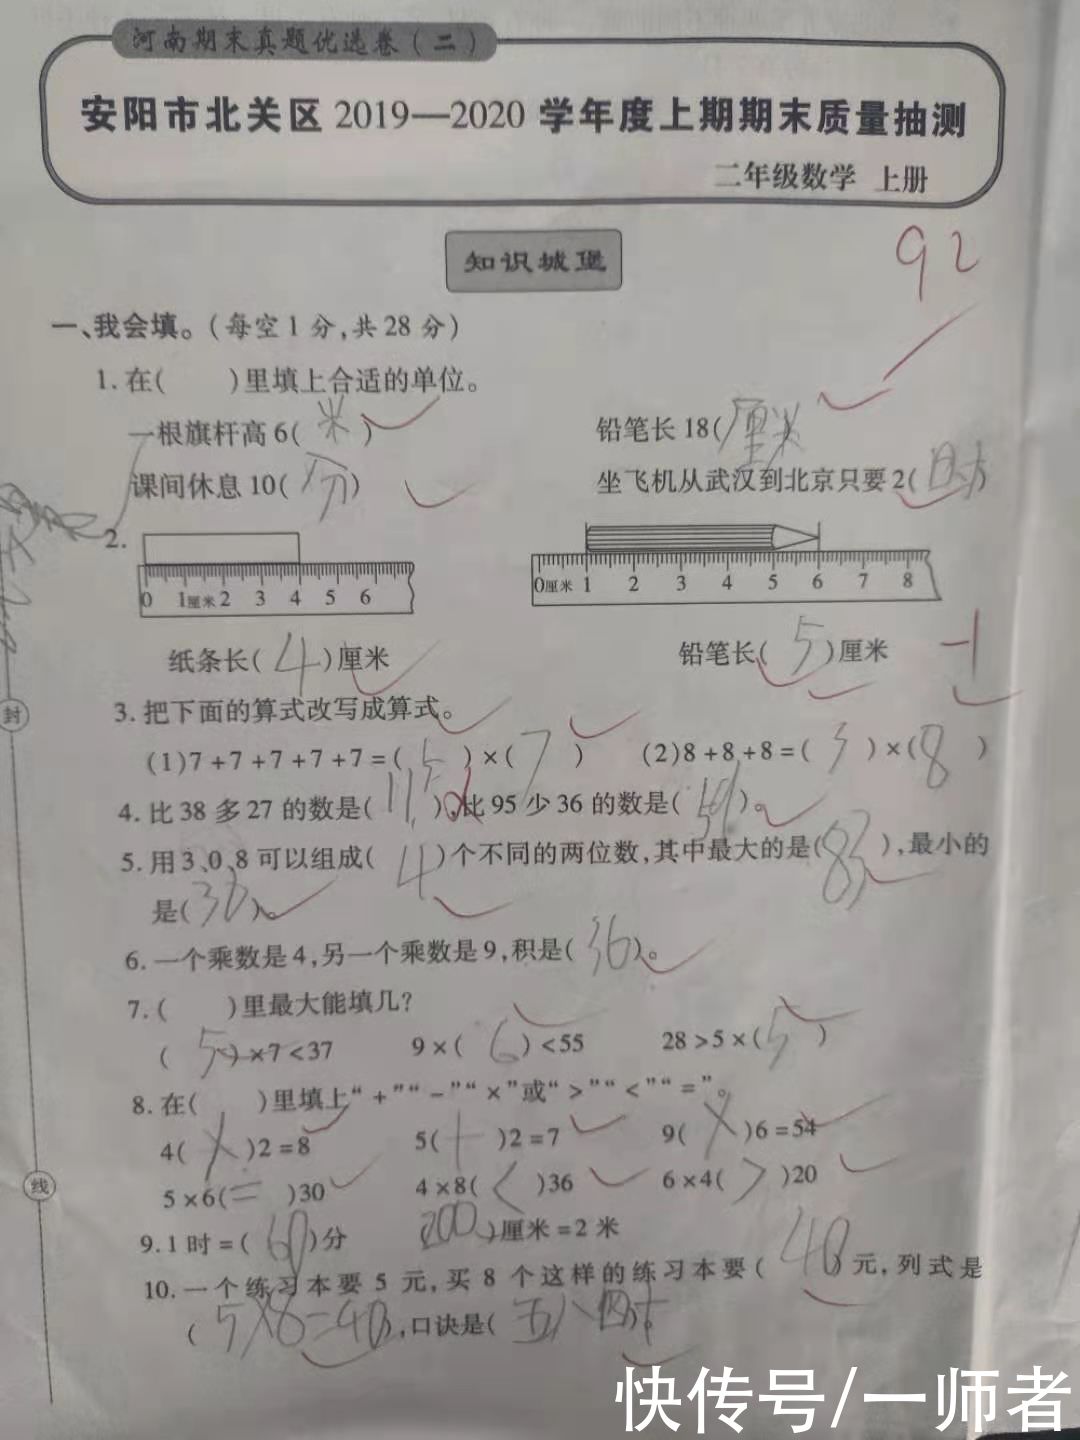 河南期末真题优选卷（二）
安阳市北关区2019—2020学年度上期期末质量抽测
二年级数学 上册
知识城堡
92
一、我会填。（每空1分，共28分）
1. 在(　　)里填上合适的单位。
一根旗杆高6(米)　　铅笔长18(厘米)
课间休息10(分)　　坐飞机从武汉到北京只要2(时)
2.
0 1厘米 2 3 4 5 6　　0厘米 1 2 3 4 5 6 7 8
纸条长(4)厘米　　铅笔长(5)厘米　　-1
3. 把下面的算式改写成算式。
(1)7+7+7+7+7=(5)×(7)　　(2)8+8+8=(3)×(8)
4. 比38多27的数是(11),比95少36的数是(59)。
5. 用3、0、8可以组成(4)个不同的两位数,其中最大的是(83),最小的
是(30)。
6. 一个乘数是4,另一个乘数是9,积是(36)。
7. (　　)里最大能填几?
(5)×7<37　　9×(6)<55　　28>5×(5)
8. 在(　　)里填上“+”“-”“×”或“>”“<”“=”。
4(×)2=8　　5(+)2=7　　9(×)6=54
5×6(=)30　　4×8(<)36　　6×4(>)20
9. 1时=(60)分　　(200)厘米=2米
10. 一个练习本要5元,买8个这样的练习本要(40)元,列式是
(5×8=40),口诀是(五八四十)。
封
线
快传号/一师者